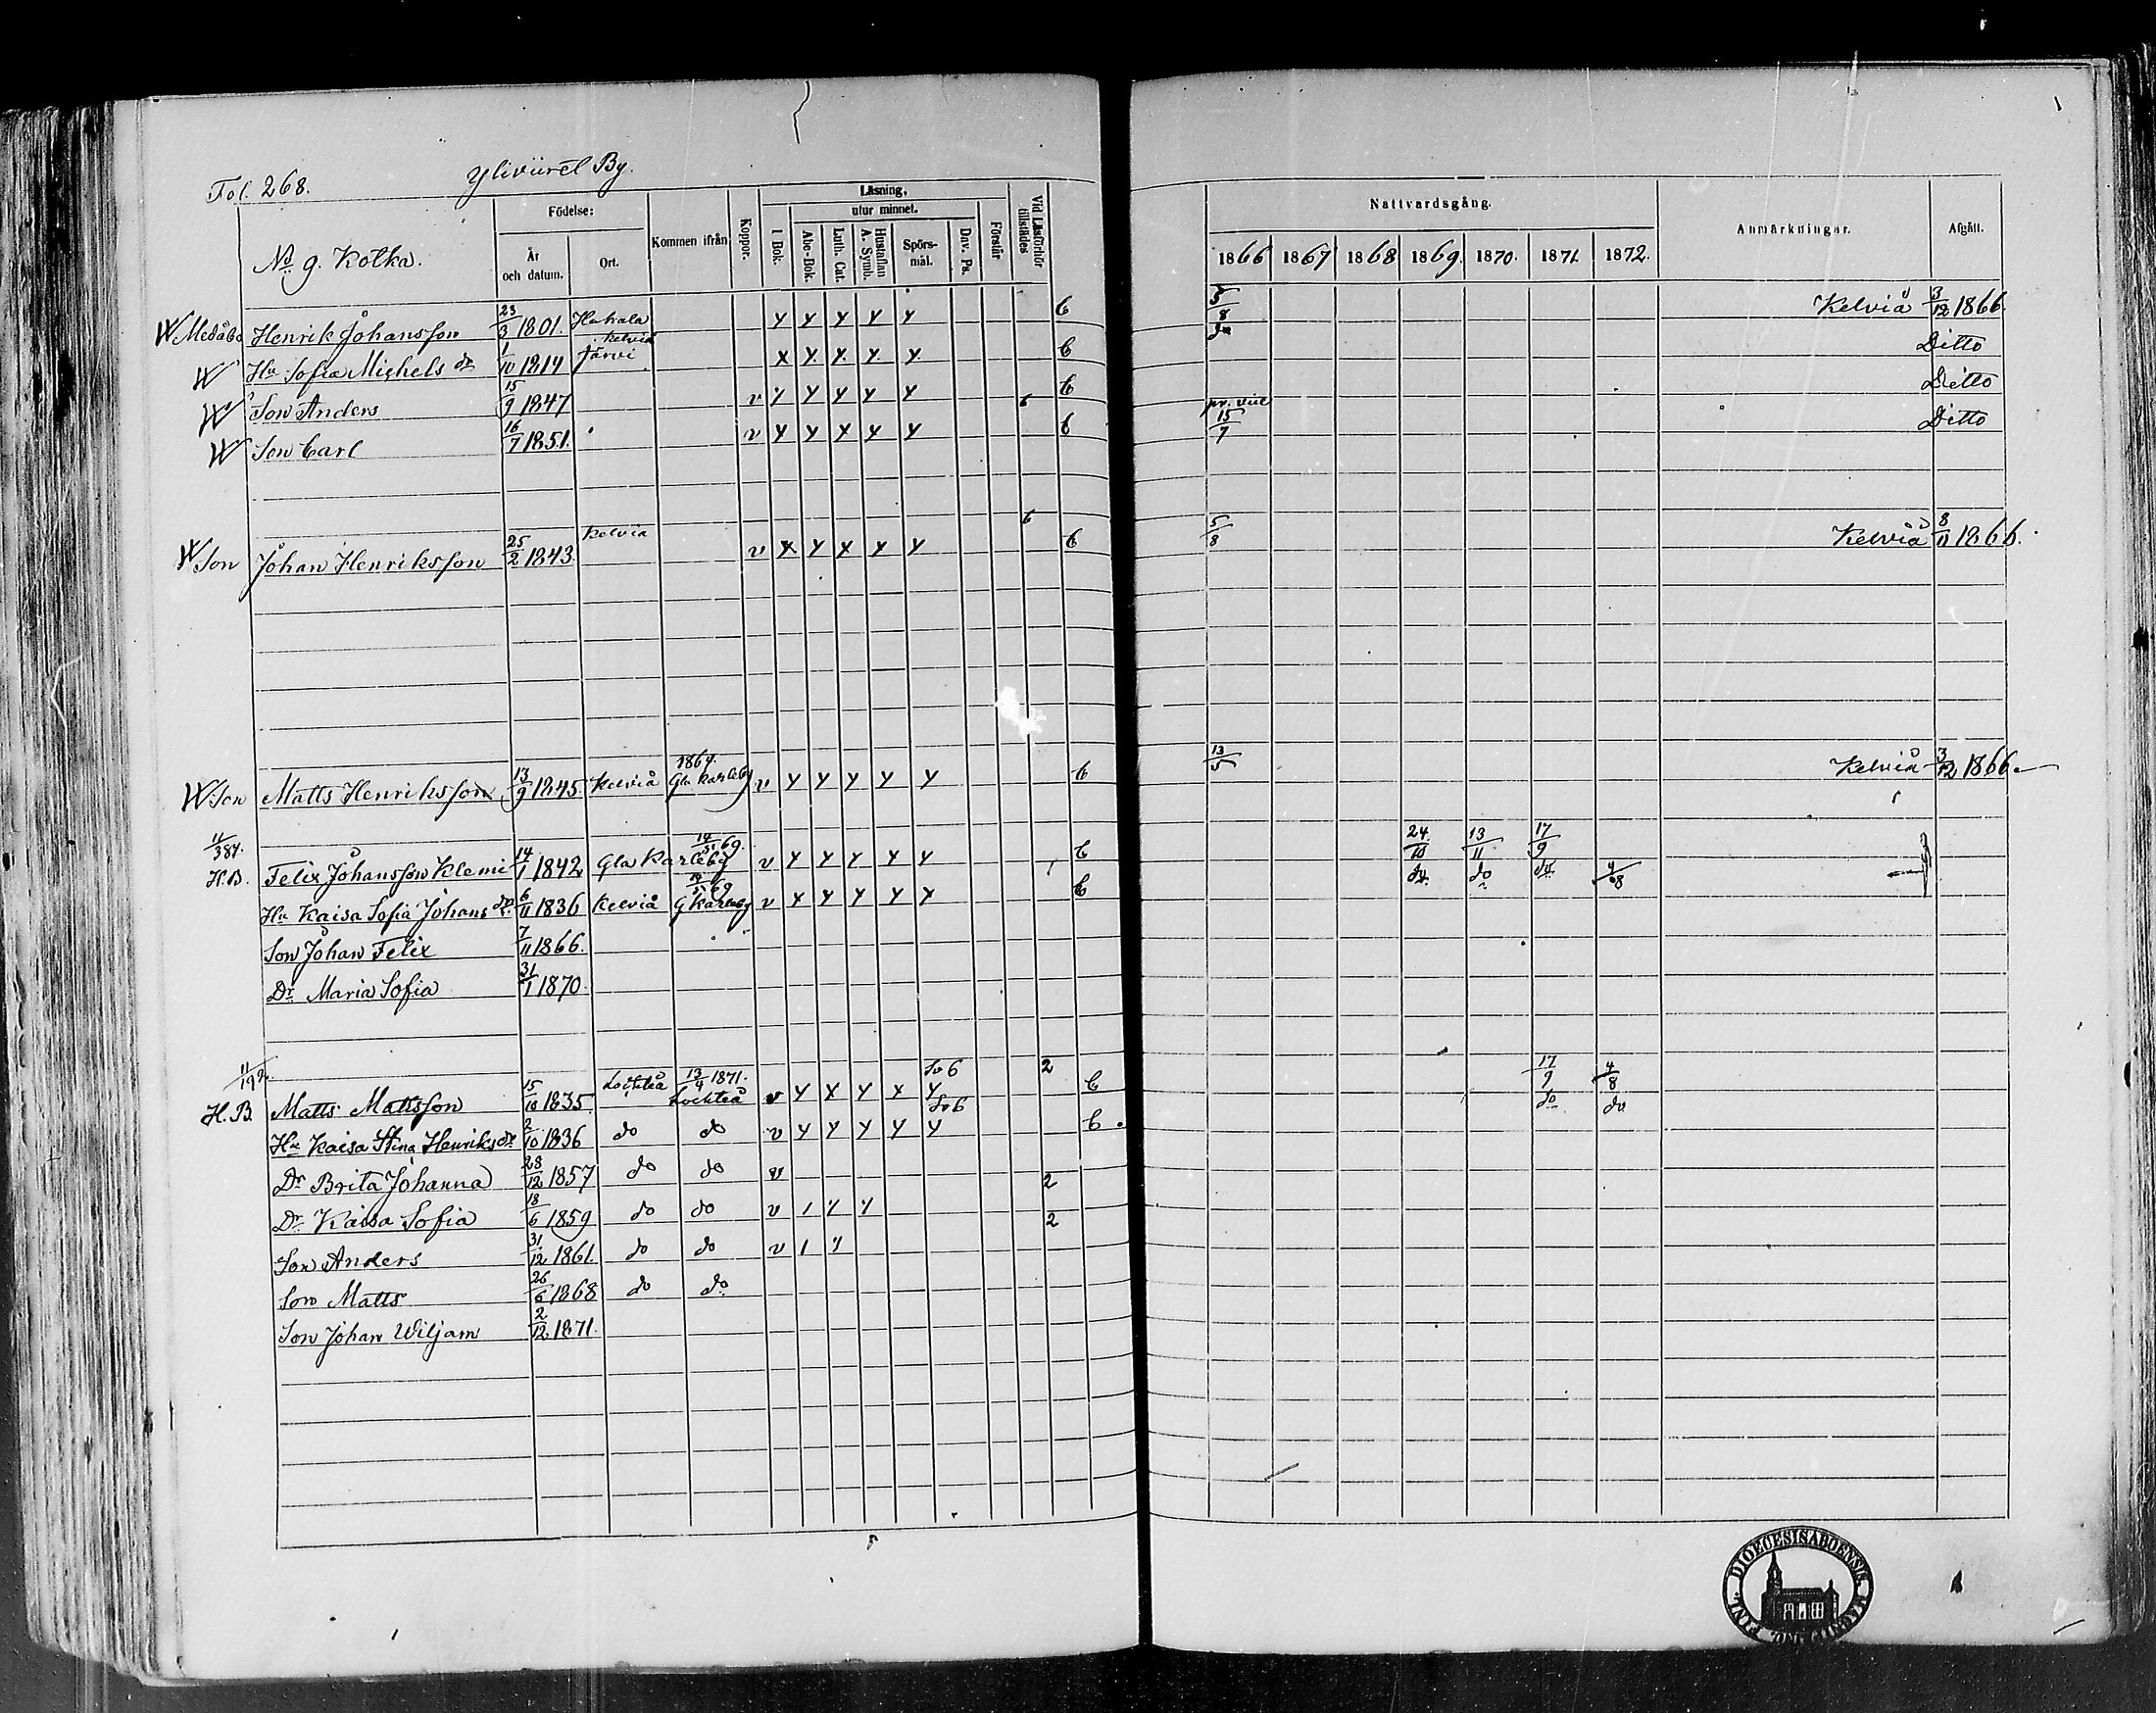 Fol. 268. Ylivürel By.
No. 9. Kotka.
Födelse: År och datum. Ort.
Kommen ifrån
Koppor.
Läsning, utur minnet.
I Bok. Abc-Bok. Luth. Cat. Hustaflan A. Symb. Spörs-mål. Dav. Ps. Förstår
Vid Läsförhör tillstädes
Nattvardsgång.
1866 1867 1868 1869. 1870. 1871. 1872.
Anmärkningar. Afgått.
Henrik Johansson 23/3 1801. y y y y y 5/8 Kelviå 3/12 1866.
Hu Sofia Michels dr 1/10 1819 Kelviå Järvi x y y y y do Ditto
Son Anders 15/9 1847 v y y y y y Ditto
Son Carl 16/7 1851. v y y y y y 15/7 Ditto
Son Johan Henriksson 25/2 1843. Kelvia v y y y y y 5/8 Kelviå 8/11 1866.
Son Matts Henriksson 13/9 1845. Kelviå 1869. Gla Karleby v y y y y y 13/5 Kelviå 3/12 1866.
11/387.
H.B. Felix Johansson Klemi 14/1 1842 Gla Karleby 69. v y y y y y 24/10 13/11 17/9
Hu Kaisa Sofia Johans dr 6/11 1836 Kelviå G Karleby 69 v y y y y y do do do 4/8
Son Johan Felix 7/11 1866.
Dr. Maria Sofia 31/1 1870.
11/192
H.B. Matts Mattsson 15/10 1835. Lochteå 13/4 1871. Lochteå v y x y x y 2 17/9 4/8
Hu Kaisa Stina Henriks dr 2/10 1836 do do v y y y y y do do
Dr Brita Johanna 28/12 1857 do do v 2
Dr. Kaisa Sofia 18/6 1859 do do v 1 y y 2
Son Anders 31/12 1861. do do v 1 y
Son Matts 26/6 1868 do do
Son Johan Wiljam 2/12 1871.